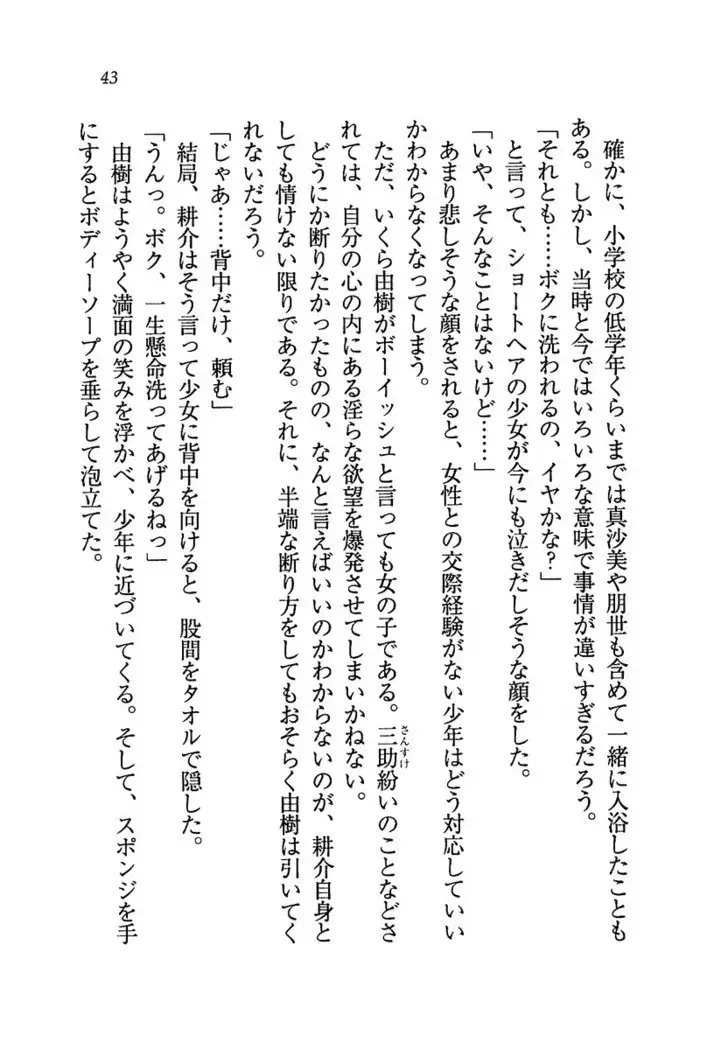 43
確かに、小学校の低学年くらいまでは真沙美や朋世も含めて一緒に入浴したことも
ある。しかし、当時と今ではいろいろな意味で事情が違いすぎるだろう。
「それとも……ボクに洗われるの、イヤかな？」
と言って、ショートヘアの少女が今にも泣きだしそうな顔をした。
「いや、そんなことはないけど……」
あまり悲しそうな顔をされると、女性との交際経験がない少年はどう対応していい
かわからなくなってしまう。
ただ、いくら由樹がボーイッシュと言っても女の子である。三助紛いのことなどさ
さんすけ
れては、自分の心の内にある淫らな欲望を爆発させてしまいかねない。
どうにか断りたかったものの、なんと言えばいいのかわからないのが、耕介自身と
しても情けない限りである。それに、半端な断り方をしてもおそらく由樹は引いてく
れないだろう。
「じゃあ……背中だけ、頼む」
結局、耕介はそう言って少女に背中を向けると、股間をタオルで隠した。
「うんっ。ボク、一生懸命洗ってあげるねっ」
由樹はようやく満面の笑みを浮かべ、少年に近づいてくる。そして、スポンジを手
にするとボディーソープを垂らして泡立てた。